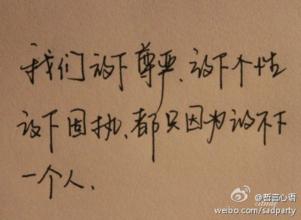 我们放下尊严、放下个性
放下固执、都只因为放不下
一个人、
@哲言心语
weibo.com/sadparty